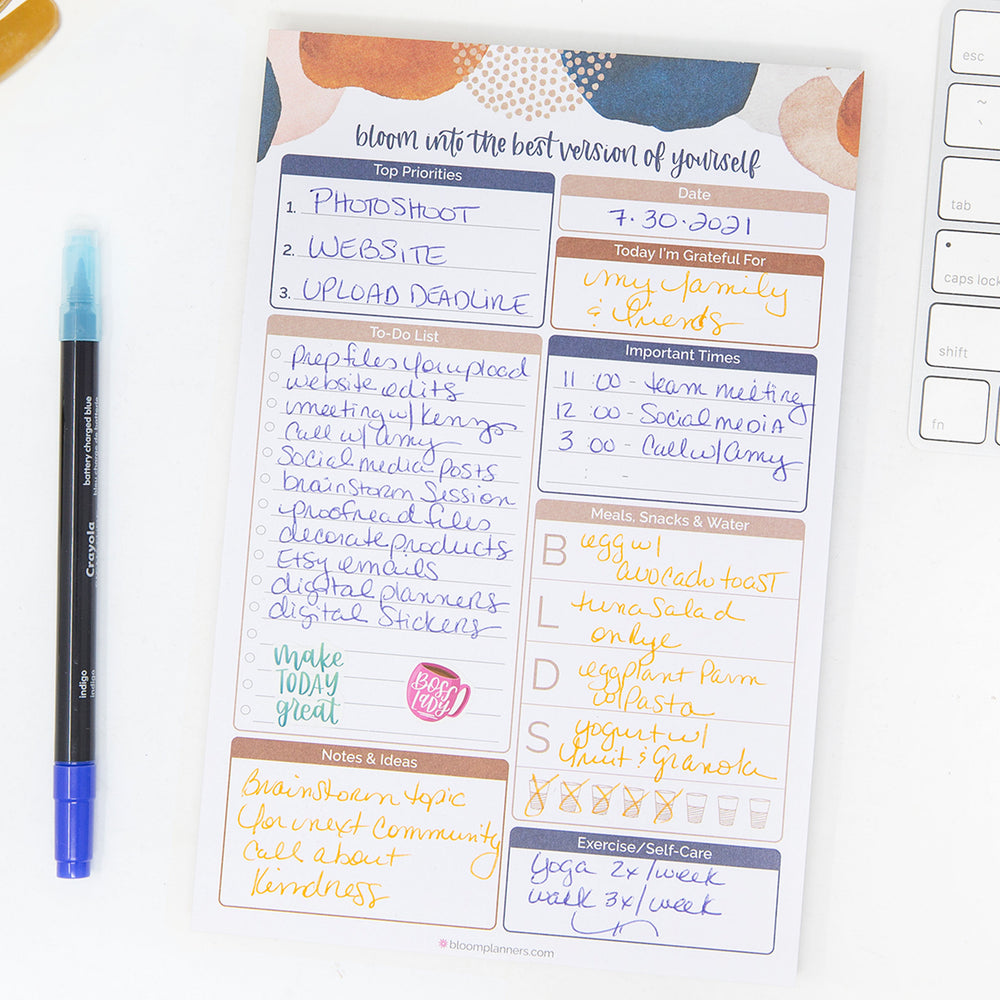 bloom into the best version of yourself
Top Priorities
1. PHOTOSHOOT
2. WEBSITE
3. UPLOAD DEADLINE
Date
7.30.2021
Today I'm Grateful For
my family
& friends
To-Do List
prep files for upload
website edits
meeting w/ Kenzo
Call w/ Amy
Social media posts
brainstorm Session
proofread files
decorate products
Etsy emails
digital planners
digital Stickers
make
TODAY
great
BOSS
LADY
Important Times
11:00 - team meeting
12:00 - Social media
3 00 - Call w/ Amy
Meals, Snacks & Water
B egg w/
avocado toast
L tuna Salad
on Rye
D eggplant Parm
w/ Pasta
S yogurt w/
fruit & Granola
Notes & Ideas
Brainstorm topic
for next Community
Call about
Kindness
Exercise/Self-Care
yoga 2x/week
walk 3x/week
bloomplanners.com
battery charged blue
Crayola
indigo
indigo
esc
~
tab
caps lock
shift
fn